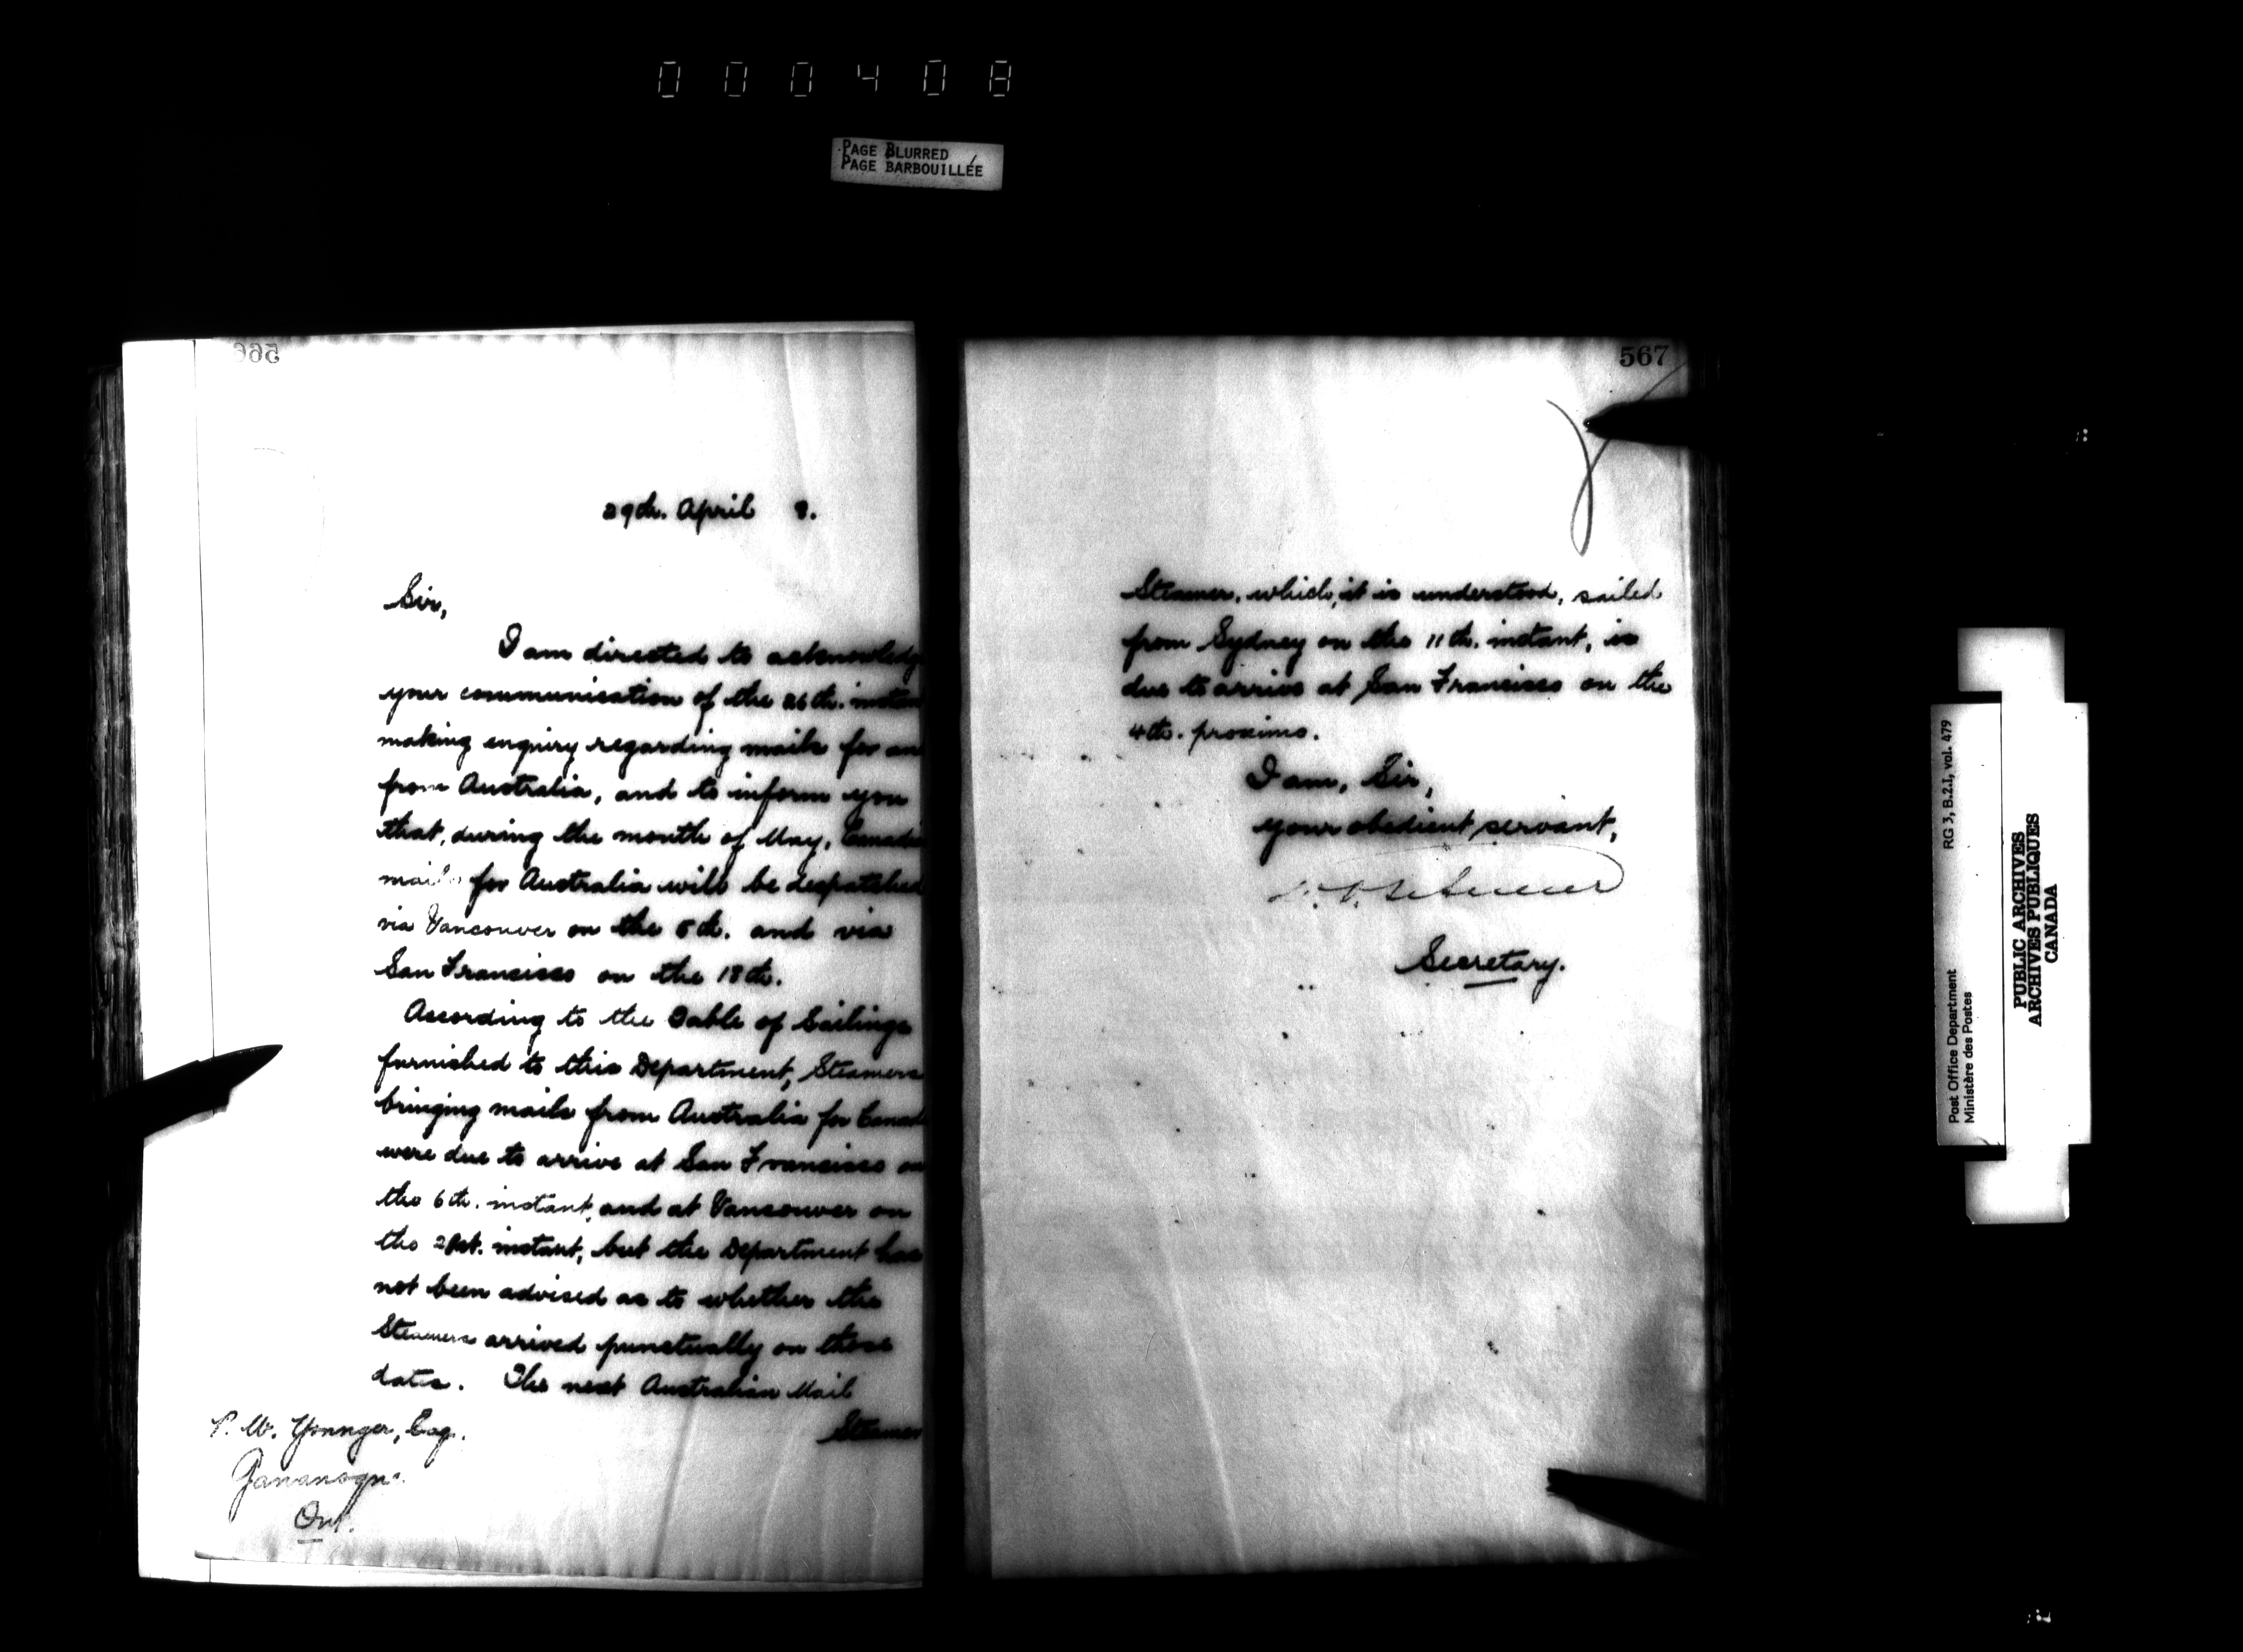 000408
PAGE BLURRED
PAGE BARBOUILLÉE
566
29th. April 8.
Sir,
I am directed to acknowledg
your communication of the 26th. instan
making enquiry regarding mails for an
from Australia, and to inform you
that, during the month of May, Canadia
mails for Australia will be despatched
via Vancouver on the 5th. and via
San Francisco on the 18th.
According to the Table of Sailings
furnished to this Department, Steamers
bringing mails from Australia for Canad
were due to arrive at San Francisco on
the 6th. instant, and at Vancouver on
the 21st. instant, but the Department has
not been advised as to whether the
Steamers arrived punctually on those
dates. The next Australian Mail
Steamer
P. W. Younger, Esq.
Gananoque
Ont.
567
Steamer, which, it is understood, sailed
from Sydney on the 11th. instant, is
due to arrive at San Francisco on the
4th. proximo.
I am, Sir,
your obedient servant,
Secretary.
Post Office Department
Ministère des Postes
RG 3, B.2.1, vol. 479
PUBLIC ARCHIVES
ARCHIVES PUBLIQUES
CANADA